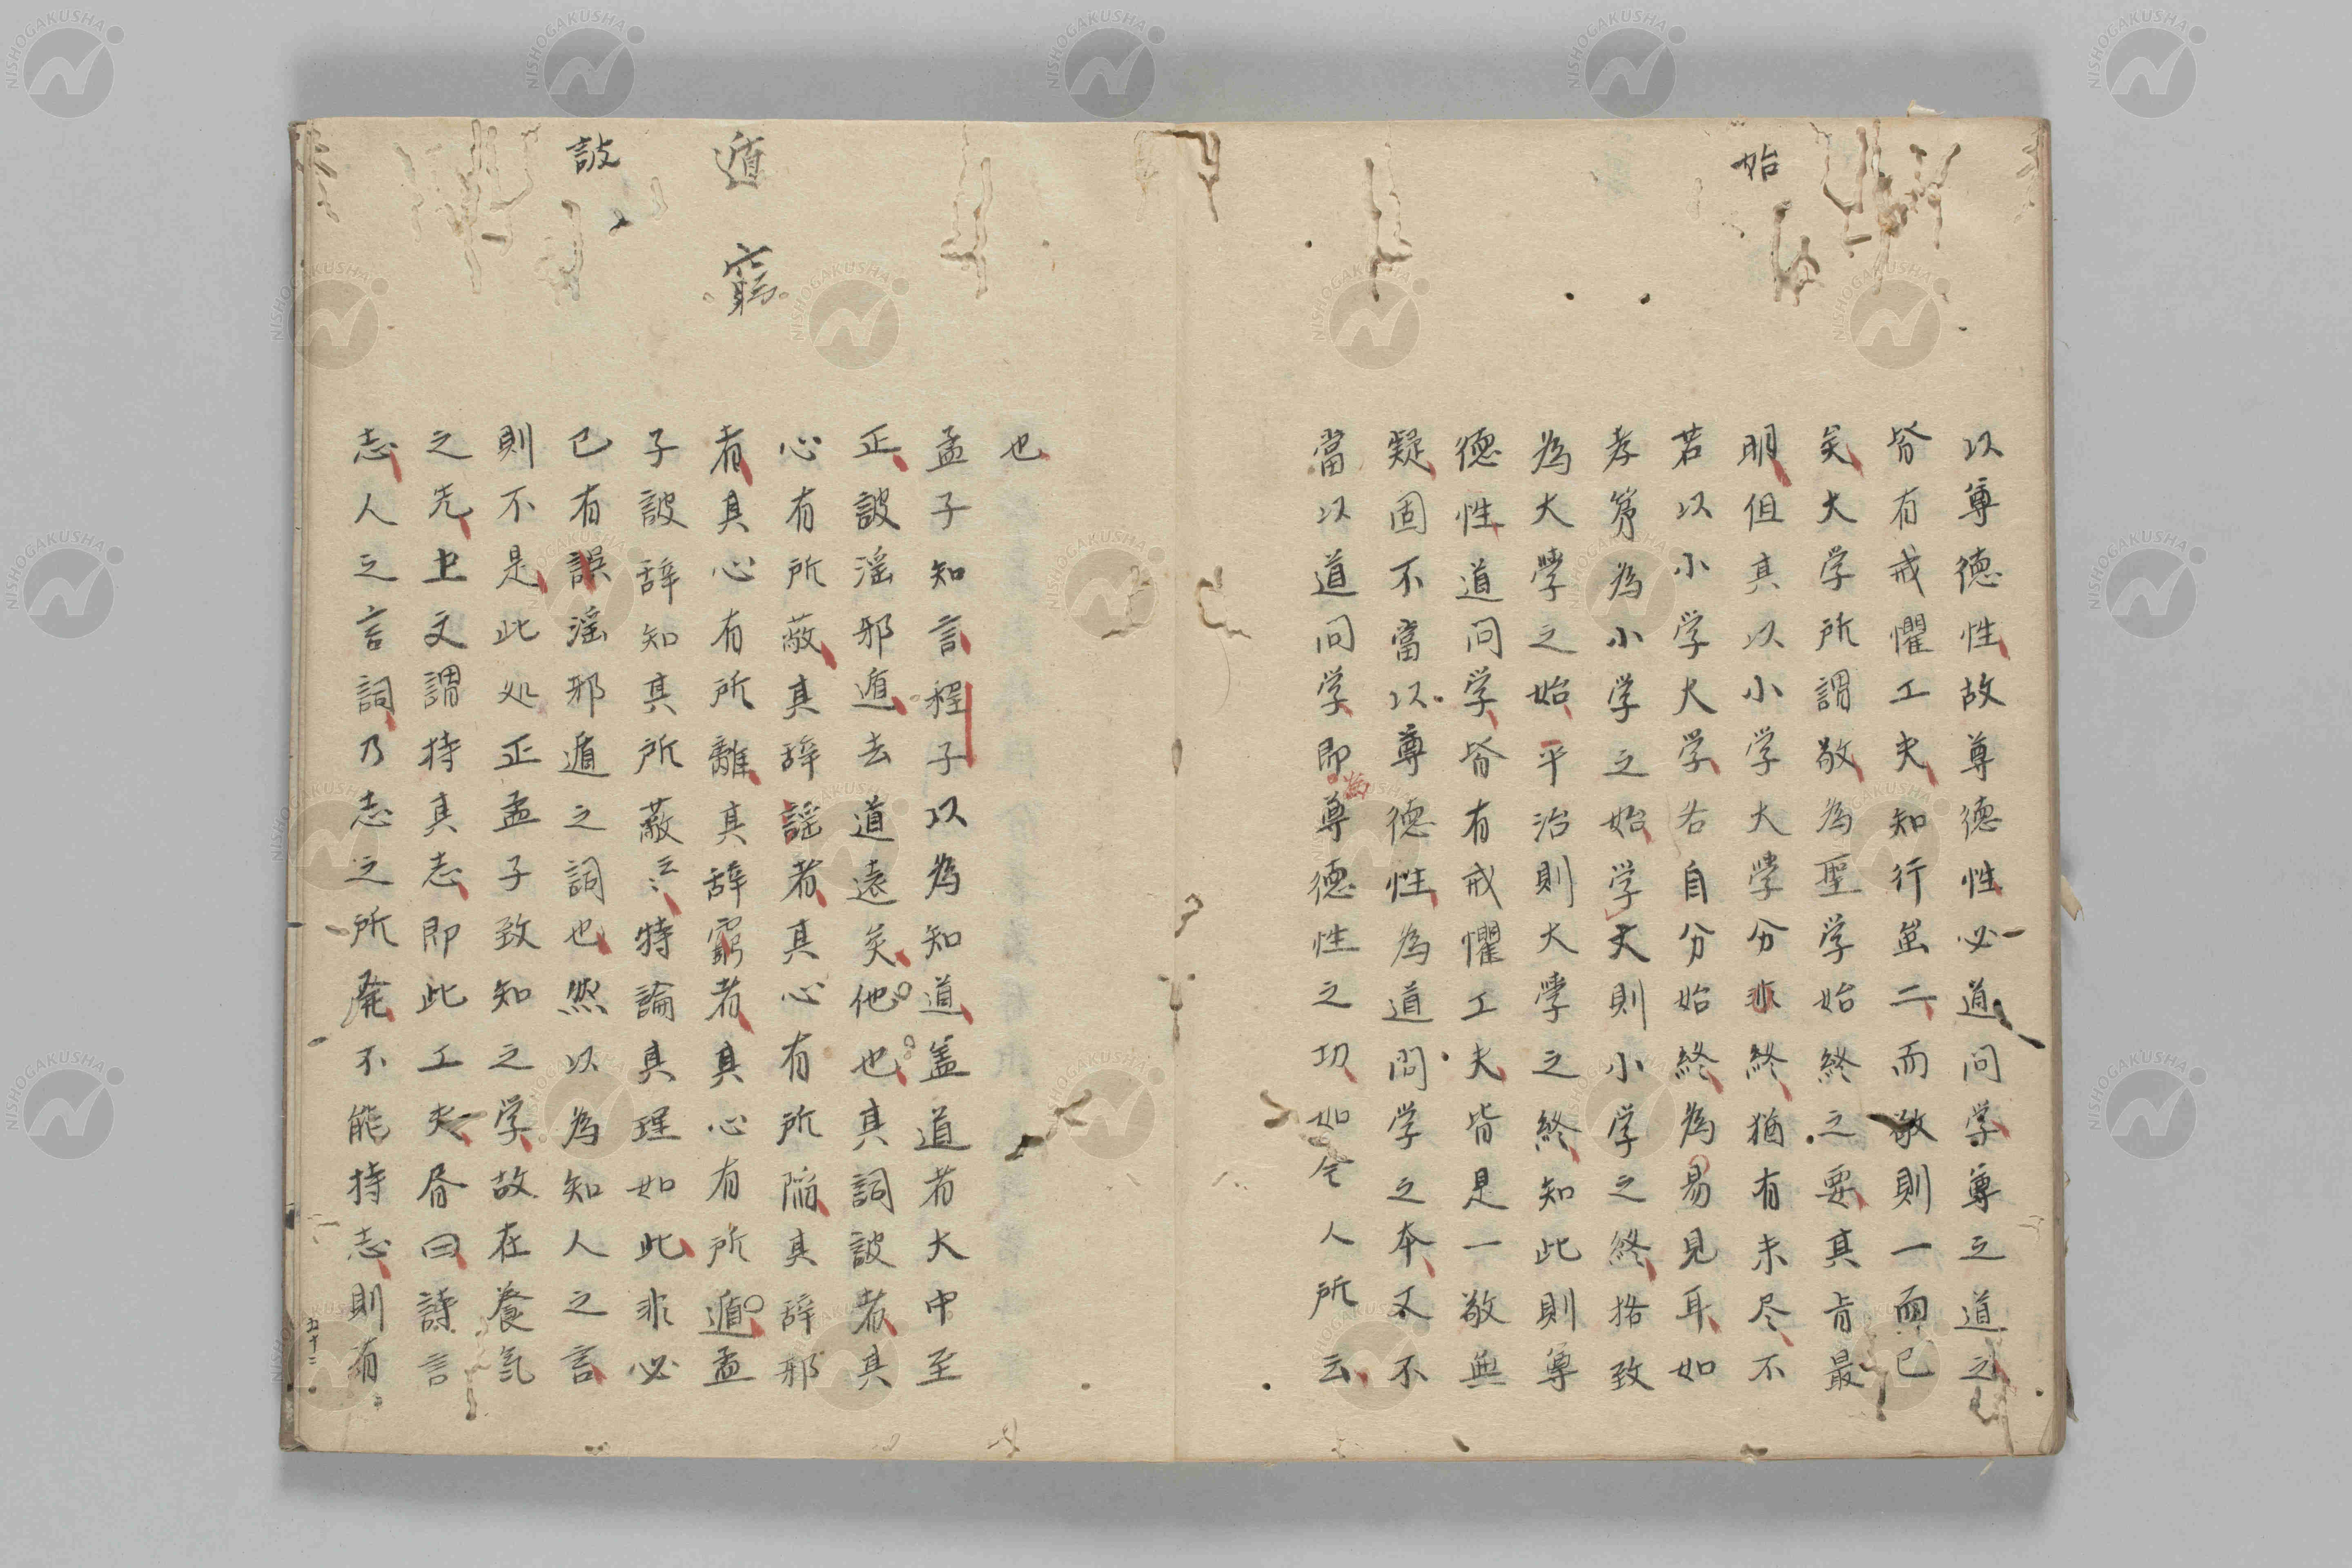 始
以尊德性故尊德性必道问学尊之道之
皆有戒懼工夫知行虽二而敬則一而已
矣大学所謂敬為聖学始終之要其肯最
明但其以小学大學分非終猶有未尽不
若以小学大学各自分始終為易見耳如
孝第為小学之始学文則小学之終格致
為大學之始平治則大學之終知此則尊
德性道问学皆有戒懼工夫皆是一敬無
疑固不當以尊德性為道問学之本又不
當以道问学即為尊德性之功如今人所云
也
遁
窮
詖
孟子知言程子以為知道盖道者大中至
正詖滛邪遁去道遠矣他也其詞詖者其
心有所蔽其辞謠者其心有所陥其辞邪
者其心有所離其辞窮者其心有所遁孟
子詖辞知其所蔽云〻特論其理如此非必
已有誤滛邪遁之詞也然以為知人之言
則不是此処正孟子致知之学故在養氣
之先上文謂持其志即此工夫皆曰詩言
志人之言詞乃志之所発不能持志則有
五十二
NISHOGAKUSHA